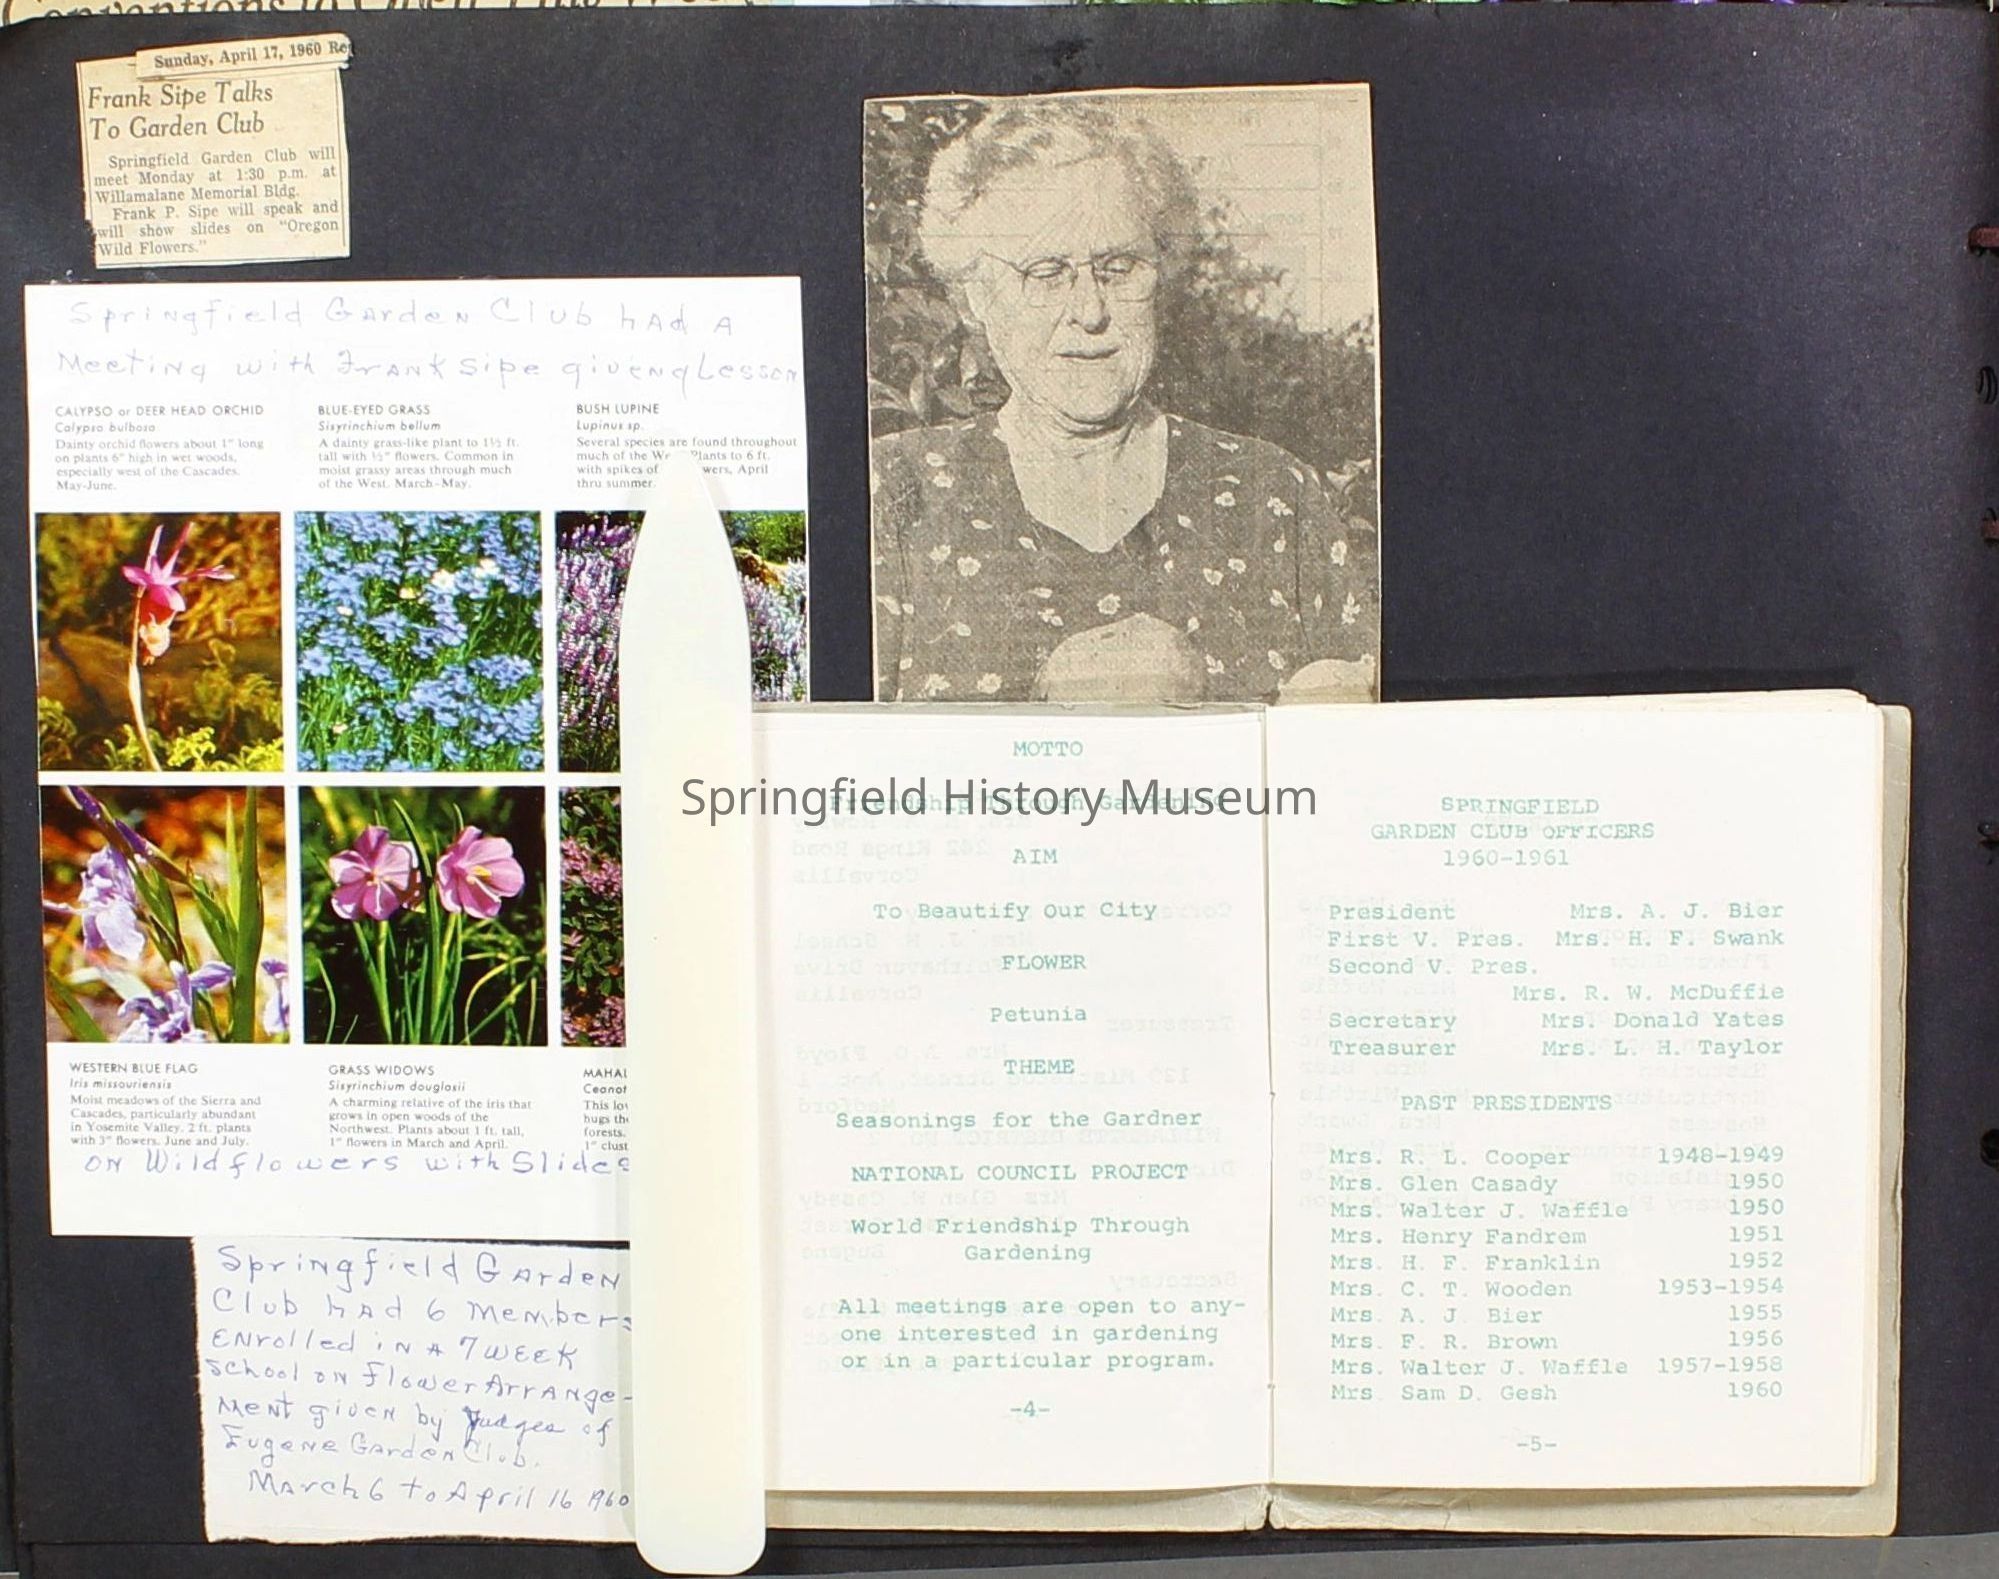 Sunday, April 17, 1960
Frank Sipe Talks
To Garden Club
Springfield Garden Club will
meet Monday at 1:30 p.m. at
Willamalane Memorial Bldg.
Frank P. Sipe will speak and
will show slides on "Oregon
Wild Flowers."
Springfield Garden Club had a
Meeting with Frank Sipe giveng Lesson
CALYPSO or DEER HEAD ORCHID
Calypso bulbosa
Dainty orchid flowers about 1" long
on plants 6" high in wet woods,
especially west of the Cascades.
May-June.
BLUE-EYED GRASS
Sisyrinchium bellum
A dainty grass-like plant to 1½ ft.
tall with ½" flowers. Common in
moist grassy areas through much
of the West. March-May.
BUSH LUPINE
Lupinus sp.
Several species are found throughout
much of the Plants to 6 ft.
with spikes of April
thru summer.
WESTERN BLUE FLAG
Iris missouriensis
Moist meadows of the Sierra and
Cascades, particularly abundant
in Yosemite Valley. 2 ft. plants
with 3" flowers. June and July.
GRASS WIDOWS
Sisyrinchium douglasii
A charming relative of the iris that
grows in open woods of the
Northwest. Plants about 1 ft. tall,
1" flowers in March and April.
MAHAL
Ceanot
This
hugs
forests.
1" clust
on Wildflowers with Slides
Springfield Garden
Club had 6 Members
Enrolled in a 7 week
School on Flower Arrange-
ment given by Judges of
Eugene Garden Club.
March 6 to April 16 1960
Springfield History Museum
MOTTO
Friendship Through Gardening
AIM
To Beautify Our City
FLOWER
Petunia
THEME
Seasonings for the Gardner
NATIONAL COUNCIL PROJECT
World Friendship Through
Gardening
All meetings are open to any-
one interested in gardening
or in a particular program.
-4-
SPRINGFIELD
GARDEN CLUB OFFICERS
1960-1961
President Mrs. A. J. Bier
First V. Pres. Mrs. H. F. Swank
Second V. Pres.
Mrs. R. W. McDuffie
Secretary Mrs. Donald Yates
Treasurer Mrs. L. H. Taylor
PAST PRESIDENTS
Mrs. R. L. Cooper 1948-1949
Mrs. Glen Casady 1950
Mrs. Walter J. Waffle 1950
Mrs. Henry Fandrem 1951
Mrs. H. F. Franklin 1952
Mrs. C. T. Wooden 1953-1954
Mrs. A. J. Bier 1955
Mrs. F. R. Brown 1956
Mrs. Walter J. Waffle 1957-1958
Mrs. Sam D. Gesh 1960
-5-